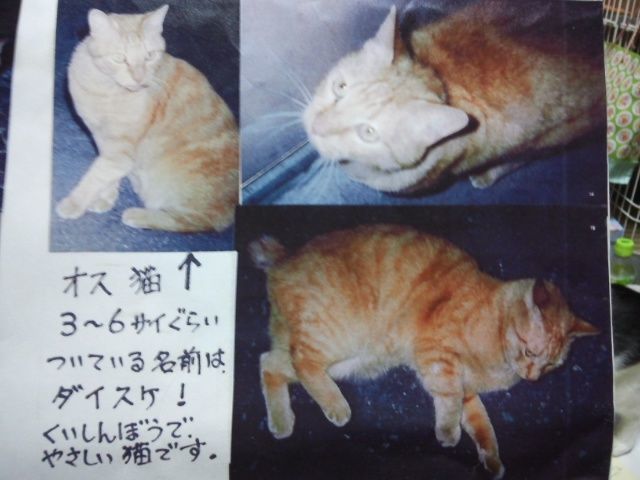 オス猫↑
3〜6サイぐらい
ついている名前は、
ダイスケ!
くいしんぼうで、
やさしい猫です。